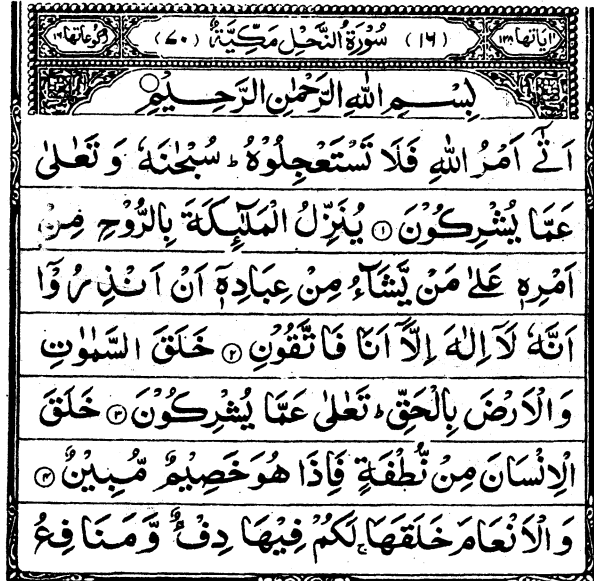 اٰيَاتُهَا ١٢٨ (١٦) سُوْرَةُ النَّحْلِ مَكِّيَّةٌ (٧٠) رُكُوْعَاتُهَا ١٦
بِسْمِ اللّٰهِ الرَّحْمٰنِ الرَّحِيْمِ
اَتٰٓى اَمْرُ اللّٰهِ فَلَا تَسْتَعْجِلُوْهُ ؕ سُبْحٰنَهٗ وَ تَعٰلٰى
عَمَّا يُشْرِكُوْنَ ۝۱ يُنَزِّلُ الْمَلٰٓئِكَةَ بِالرُّوْحِ مِنْ
اَمْرِهٖ عَلٰى مَنْ يَّشَآءُ مِنْ عِبَادِهٖۤ اَنْ اَنْذِرُوْۤا
اَنَّهٗ لَاۤ اِلٰهَ اِلَّاۤ اَنَا فَاتَّقُوْنِ ۝۲ خَلَقَ السَّمٰوٰتِ
وَ الْاَرْضَ بِالْحَقِّ ؕ تَعٰلٰى عَمَّا يُشْرِكُوْنَ ۝۳ خَلَقَ
الْاِنْسَانَ مِنْ نُّطْفَةٍ فَاِذَا هُوَ خَصِيْمٌ مُّبِيْنٌ ۝۴
وَ الْاَنْعَامَ خَلَقَهَا ۚ لَكُمْ فِيْهَا دِفْءٌ وَّ مَنَافِعُ